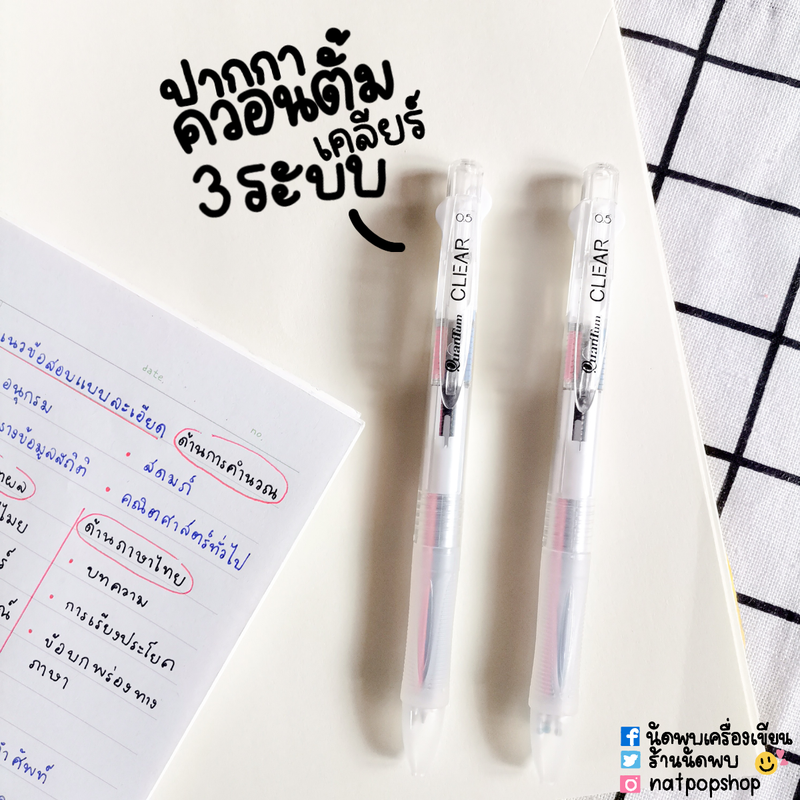 ปากกา
ควอนตั้ม
เคลียร์
3 ระบบ
0.5
CLEAR
Quantum
0.5
CLEAR
Quantum
date.
no.
แนวข้อสอบแบบละเอียด
ด้านการคำนวณ
อนุกรม
• สดมภ์
ข้อมูลสถิติ
• คณิตศาสตร์ทั่วไป
ด้านภาษาไทย
• บทความ
• การเรียงประโยค
• ข้อบกพร่องทาง
ภาษา
ศัพท์
นัดพบเครื่องเขียน
ร้านนัดพบ
natpopshop